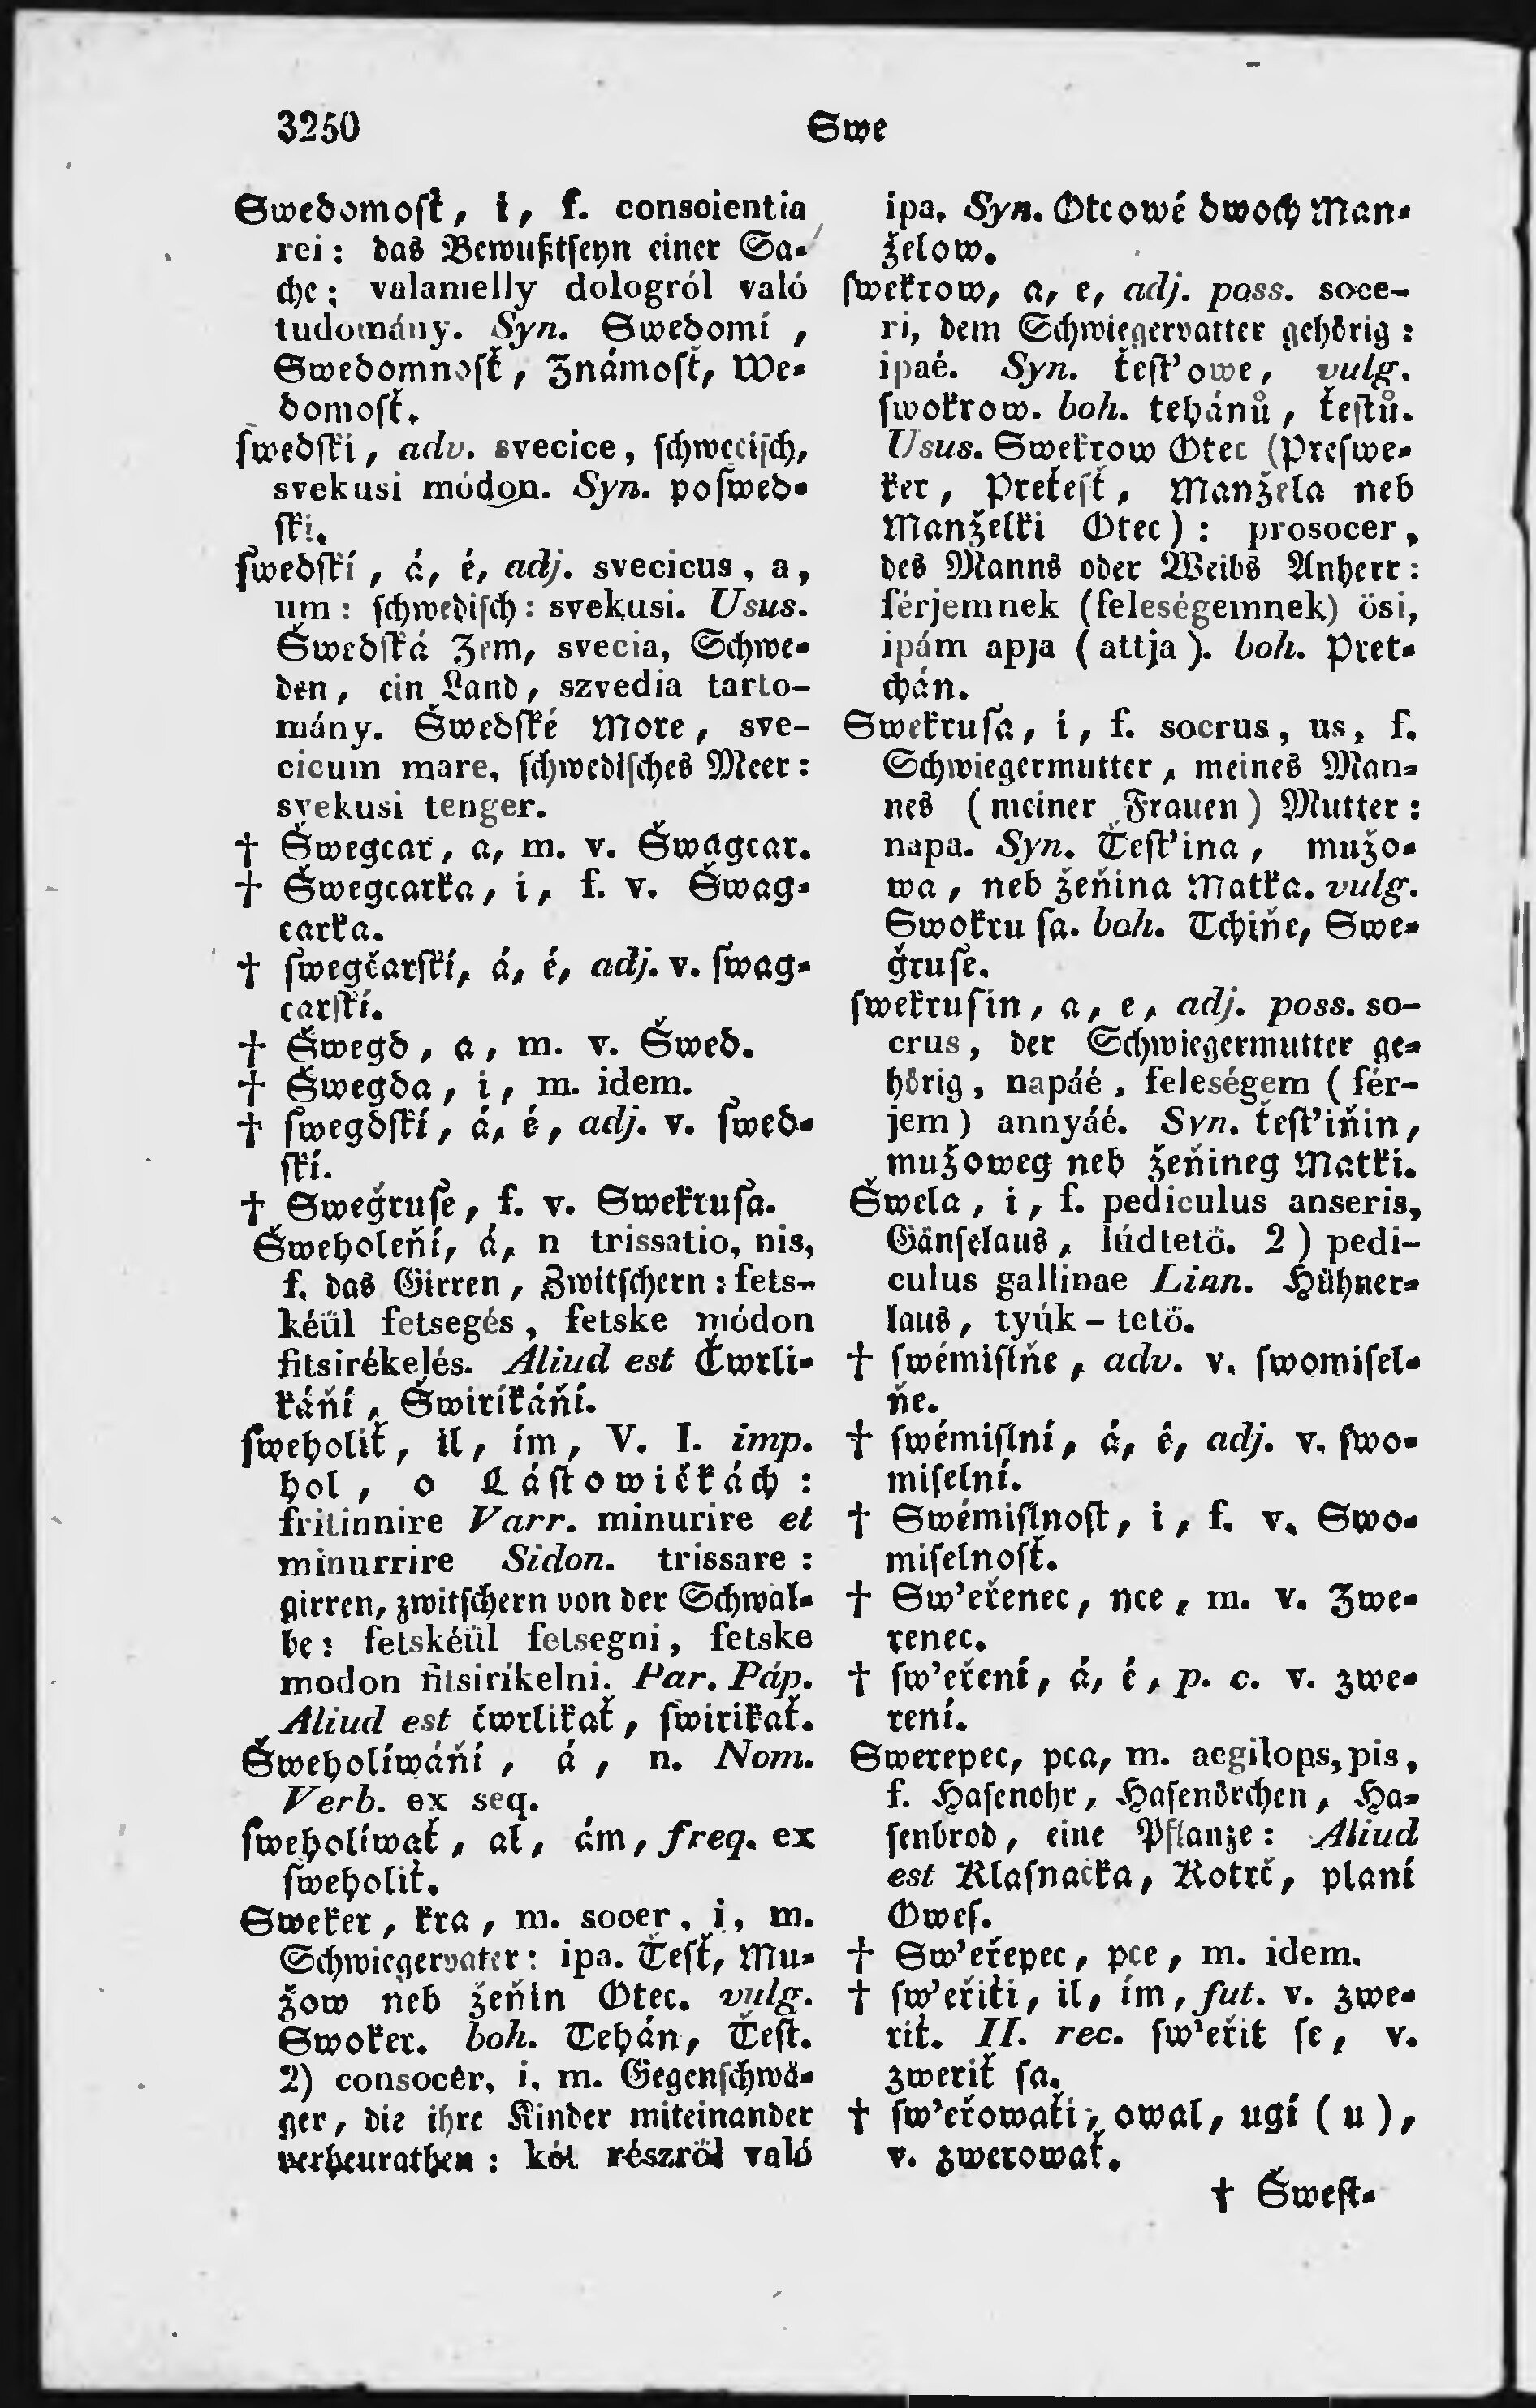 3250
Swe
Swedomosť, i, f. conscientia
rei: das Bewußtseyn einer Sa-
che; valamelly dologról való
tudomány. Syn. Swedomí,
Swedomnosť, Známosť, We-
domosť.
swedski, adv. svecice, schwecisch,
svekusi módon. Syn. poswed-
ski.
swedskí, á, é, adj. svecicus, a,
um: schwedisch: svekusi. Usus.
Šwedská Zem, svecia, Schwe-
den, ein Land, szvedia tarto-
mány. Šwedské More, sve-
cicum mare, schwedisches Meer:
svekusi tenger.
† Šwegcar, a, m. v. Šwagcar.
† Šwegcarka, i, f. v. Šwag-
carka.
† swegčarskí, á, é, adj. v. swag-
carskí.
† Šwegd, a, m. v. Šwed.
† Šwegda, i, m. idem.
† swegdskí, á, é, adj. v. swed-
skí.
† Sweǧruse, f. v. Swekrusa.
Šweholeňí, á, n trissatio, nis,
f. das Girren, Zwitschern: fets-
kéül fetsegés, fetske módon
fitsirékelés. Aliud est Čwrli-
káňí, Šwirikáňí.
sweholiť, il, ím, V. I. imp.
hol, o Lástowičkách:
fritinnire Varr. minurire et
minurrire Sidon. trissare:
girren, zwitschern von der Schwal-
be: fetskéül fetsegni, fetske
modon fitsiríkelni. Par. Páp.
Aliud est čwrlikať, swirikať.
Šweholíwáňí, á, n. Nom.
Verb. ex seq.
sweholíwať, al, ám, freq. ex
sweholiť.
Sweker, kra, m. socer, i, m.
Schwiegervater: ipa. Tesť, Mu-
žow neb žeňin Otec. vulg.
Swoker. boh. Tchán, Test.
2) consocer, i, m. Gegenschwä-
ger, die ihre Kinder miteinander
verheurathen: két részröl való
ipa. Syn. Otcowé dwoch Man-
želow.
swekrow, a, e, adj. poss. soce-
ri, dem Schwiegervatter gehörig:
ipaé. Syn. ťest'owe, vulg.
swokrow. boh. tchánů, ťestů.
Usus. Swekrow Otec (Preswe-
ker, Preťesť, Manžela neb
Manželki Otec): prosocer,
des Manns oder Weibs Anherr:
férjemnek (feleségemnek) ösi,
ipám apja (attja). boh. Pret-
chán.
Swekrusa, i, f. socrus, us, f.
Schwiegermutter, meines Man-
nes (meiner Frauen) Mutter:
napa. Syn. Ťest'ina, mužo-
wa, neb žeňina Matka. vulg.
Swokrusa. boh. Tchiňe, Swe-
ǧruse.
swekrusin, a, e, adj. poss. so-
crus, der Schwiegermutter ge-
hörig, napáé, feleségem (fér-
jem) annyáé. Syn. ťest'iňin,
mužoweg neb žeňineg Matki.
Šwela, i, f. pediculus anseris,
Gänselaus, lúdtetö. 2) pedi-
culus gallinae Linn. Hühner-
laus, tyúk-tetö.
† swémislňe, adv. v. swomisel-
ňe.
† swémislní, á, é, adj. v. swo-
miselní.
† Swémislnost, i, f. v. Swo-
miselnosť.
† Sw'eřenec, nce, m. v. Zwe-
renec.
† sw'eření, á, é, p. c. v. zwe-
rení.
Swerepec, pca, m. aegilops, pis,
f. Hasenohr, Hasenörchen, Ha-
senbrod, eine Pflanze: Aliud
est Klasnačka, Kotrč, planí
Owes.
† Sw'eřepec, pce, m. idem.
† sw'eřiti, il, ím, fut. v. zwe-
riť. II. rec. sw'eřit se, v.
zweriť sa.
† sw'eřowaťi, owal, ugi (u),
v. zwerowať.
† Šwest-